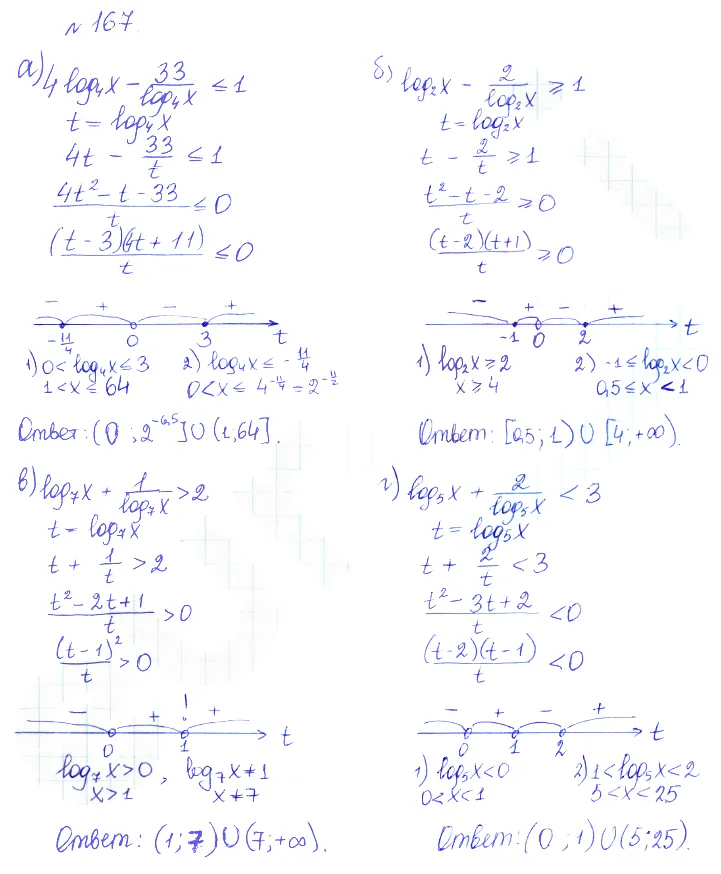 № 167.
а) 4 log₄x − 33/log₄x ≤ 1
t = log₄x
4t − 33/t ≤ 1
(4t² − t − 33)/t ≤ 0
(t − 3)(4t + 11)/t ≤ 0
− + − +
−11/4 0 3 t
1) 0 < log₄x ≤ 3 2) log₄x ≤ −11/4
1 < x ≤ 64 0 < x ≤ 4^(−11/4) = 2^(−11/2)
Ответ: (0 ; 2^(−5,5)] ∪ (1; 64].
б) log₂x − 2/log₂x ≥ 1
t = log₂x
t − 2/t ≥ 1
(t² − t − 2)/t ≥ 0
(t − 2)(t + 1)/t ≥ 0
− + − +
−1 0 2 t
1) log₂x ≥ 2 2) −1 ≤ log₂x < 0
x ≥ 4 0,5 ≤ x < 1
Ответ: [0,5; 1) ∪ [4; +∞).
в) log₇x + 1/log₇x > 2
t = log₇x
t + 1/t > 2
(t² − 2t + 1)/t > 0
(t − 1)²/t > 0
− + ! +
0 1 t
log₇x > 0 , log₇x ≠ 1
x > 1 x ≠ 7
Ответ: (1; 7) ∪ (7; +∞).
г) log₅x + 2/log₅x < 3
t = log₅x
t + 2/t < 3
(t² − 3t + 2)/t < 0
(t − 2)(t − 1)/t < 0
− + − +
0 1 2 t
1) log₅x < 0 2) 1 < log₅x < 2
0 < x < 1 5 < x < 25
Ответ: (0 ; 1) ∪ (5; 25).